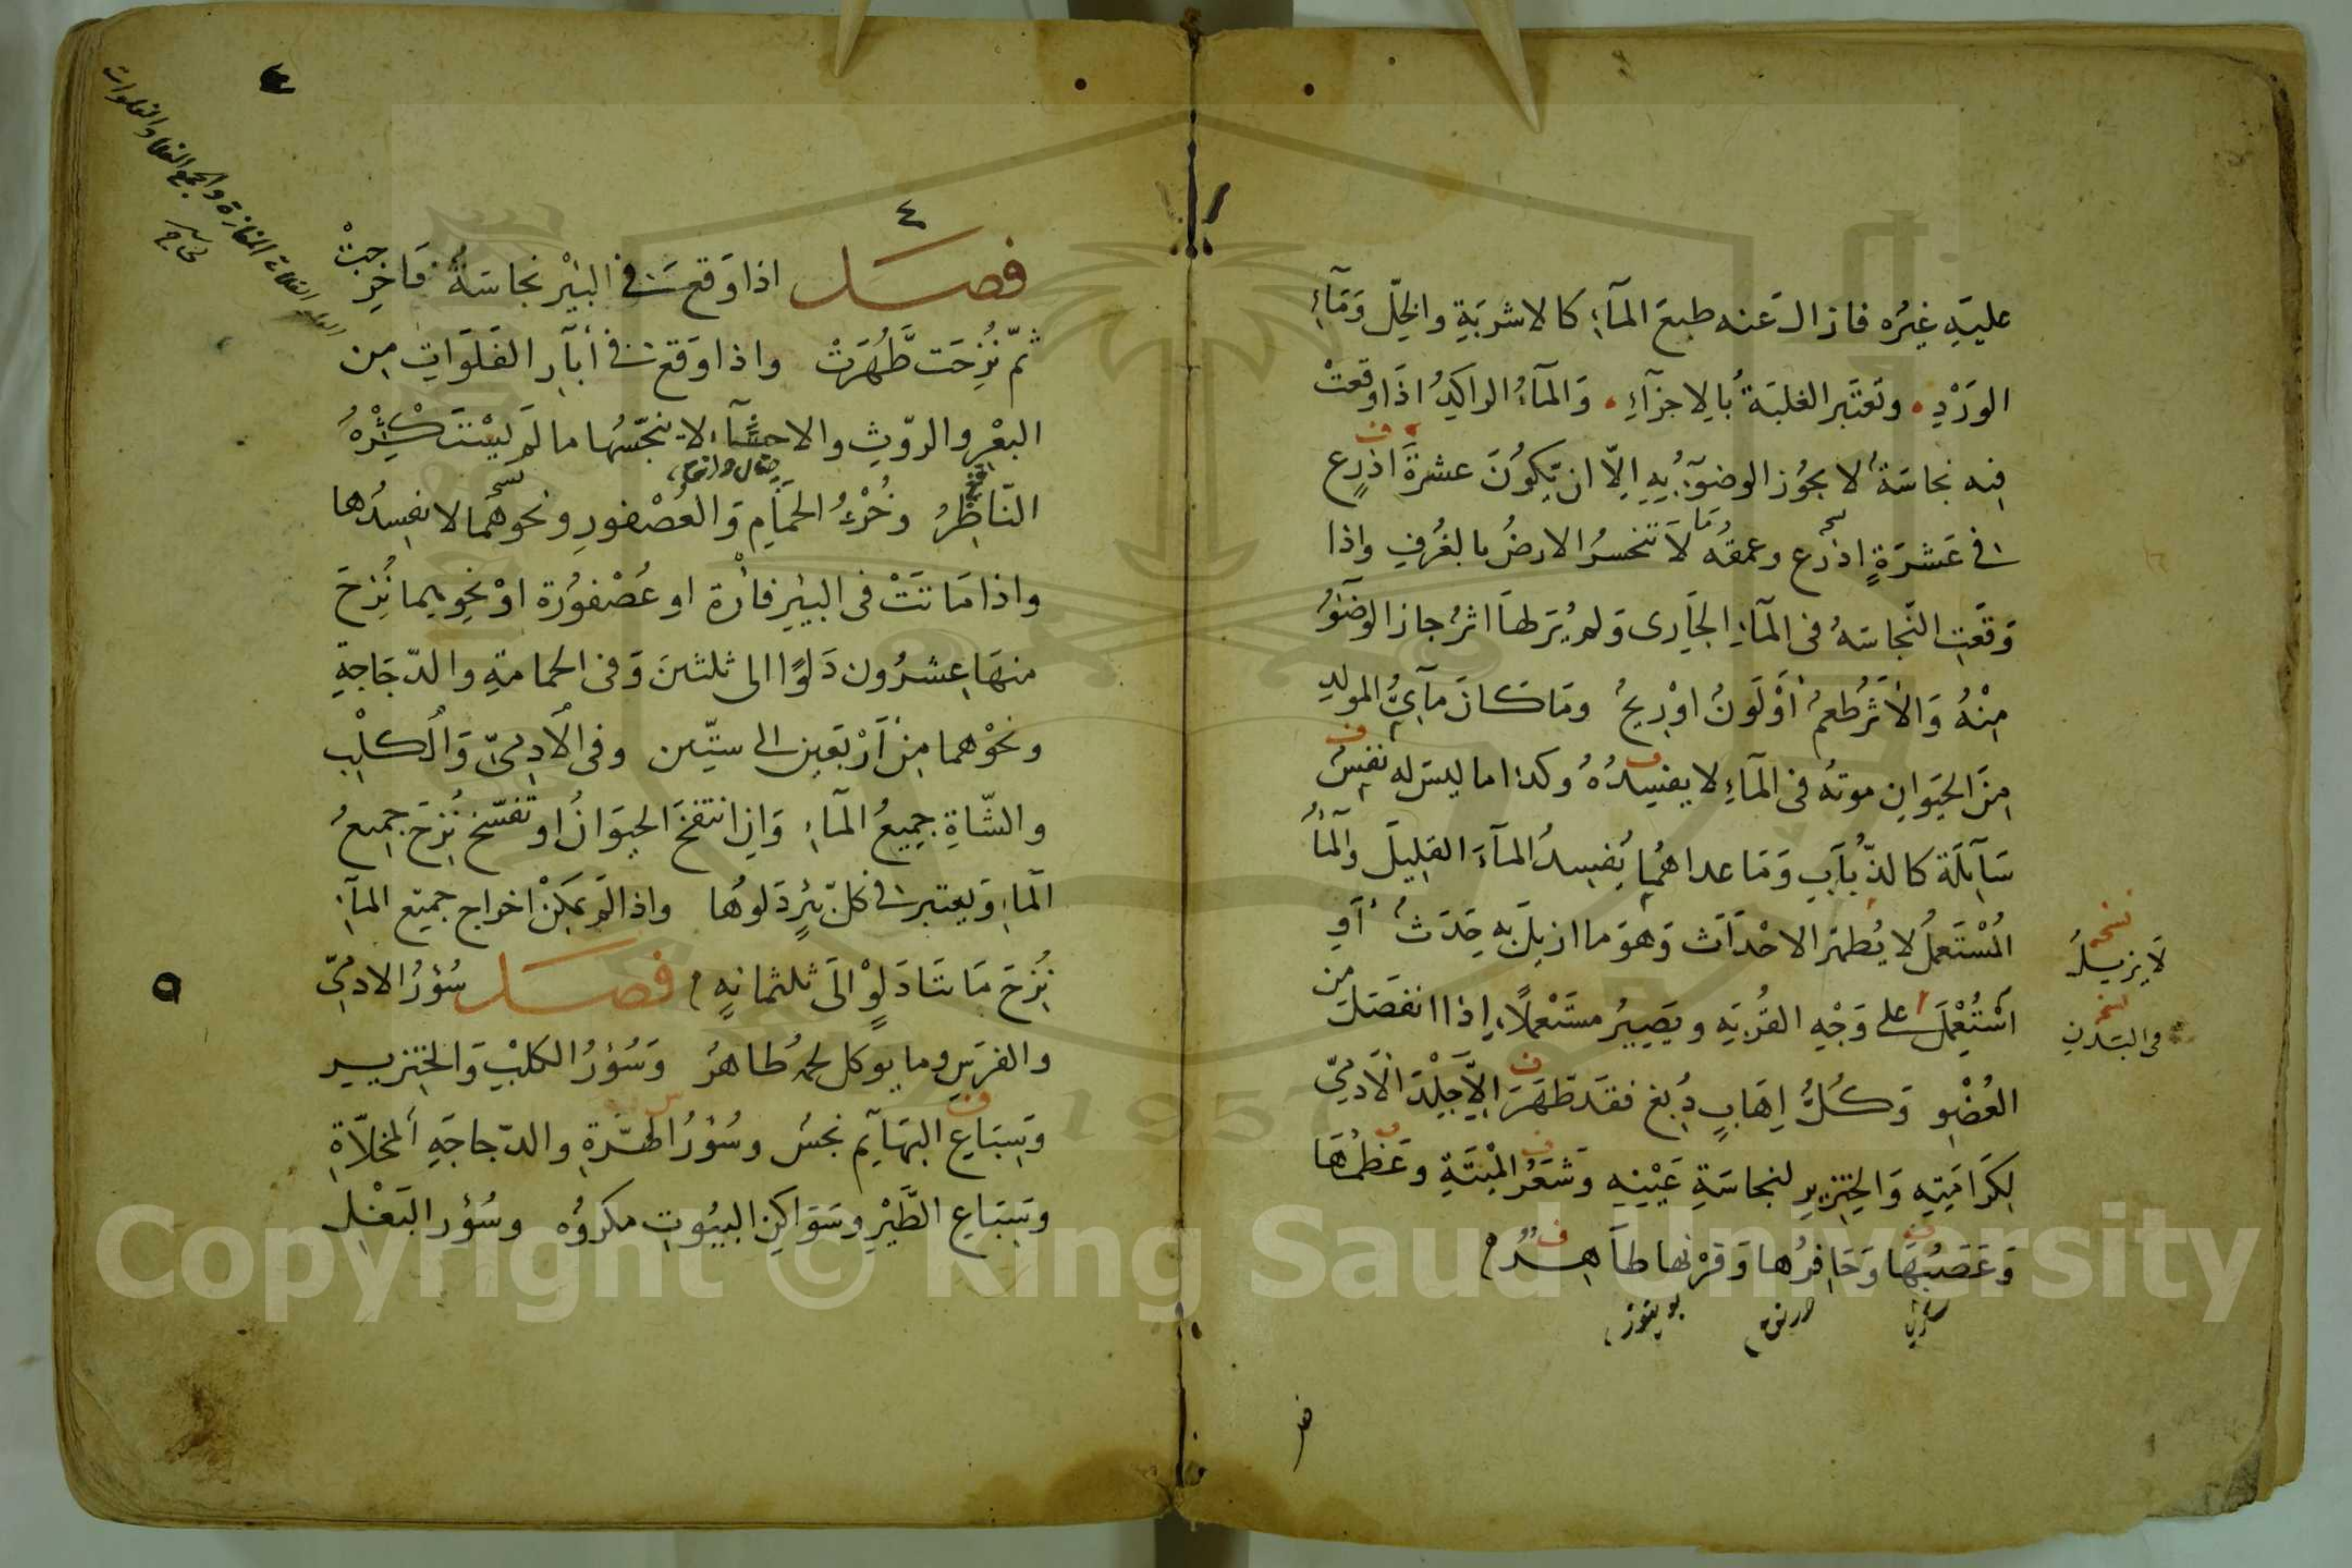 عليه غيره فازال عنه طبع المآء كالاشربة والخل ومآء
الورد • وتعتبر الغلبة بالاجزآء • والمآء الراكد اذا وقعت
فيه نجاسة لا يجوز الوضوء به الا ان يكون عشرة اذرع
فى عشرة اذرع وعمقه ما لا تنخسر الارض بالغرف واذا
وقعت النجاسة فى المآء الجارى ولم ير لها اثر جاز الوضوء
منه والاثر طعم او لون او ريح وما كان مآئى المولد
من الحيوان موته فى المآء لا يفسده وكذا ما ليس له نفس
سآئلة كالذباب وما عداهما يفسد المآء القليل والمآء
المستعمل لا يطهر الاحداث وهو ما ازيل به حدث او
استعمل على وجه القربة ويصير مستعملا اذا انفصل من
العضو وكل اهاب دبغ فقد طهر الا جلد الآدمى
لكرامته والخنزير لنجاسة عينه وشعر الميتة وعظمها
وعصبها وحافرها وقرنها طاهر
نسخه
لا يزيل
نسخه
فى البدن
٤
فصل اذا وقعت فى البئر نجاسة فاخرجت
ثم نزحت طهرت واذا وقع فى أبآر الفلوات من
البعر والروث والاحشآء لا ينجسها ما لم يستكثره
الناظر وخرء الحمام والعصفور ونحوهما لا يفسدها
واذا ماتت فى البئر فأرة او عصفورة او نحوهما نزح
منها عشرون دلوا الى ثلثين وفى الحمامة والدجاجة
ونحوهما من اربعين الى ستين وفى الآدمى والكلب
والشاة جميع المآء وان انتفخ الحيوان او تفسخ نزح جميع
المآء ويعتبر فى كل بئر دلوها واذا لم يمكن اخراج جميع المآء
نزح مائتا دلو الى ثلثمائة فصل سؤر الادمى
والفرس وما يوكل لحمه طاهر وسؤر الكلب والخنزير
وسباع البهآيم نجس وسؤر الهرة والدجاجة المخلاة
وسباع الطير وسواكن البيوت مكروه وسؤر البغل
Copyright © King Saud University
1957